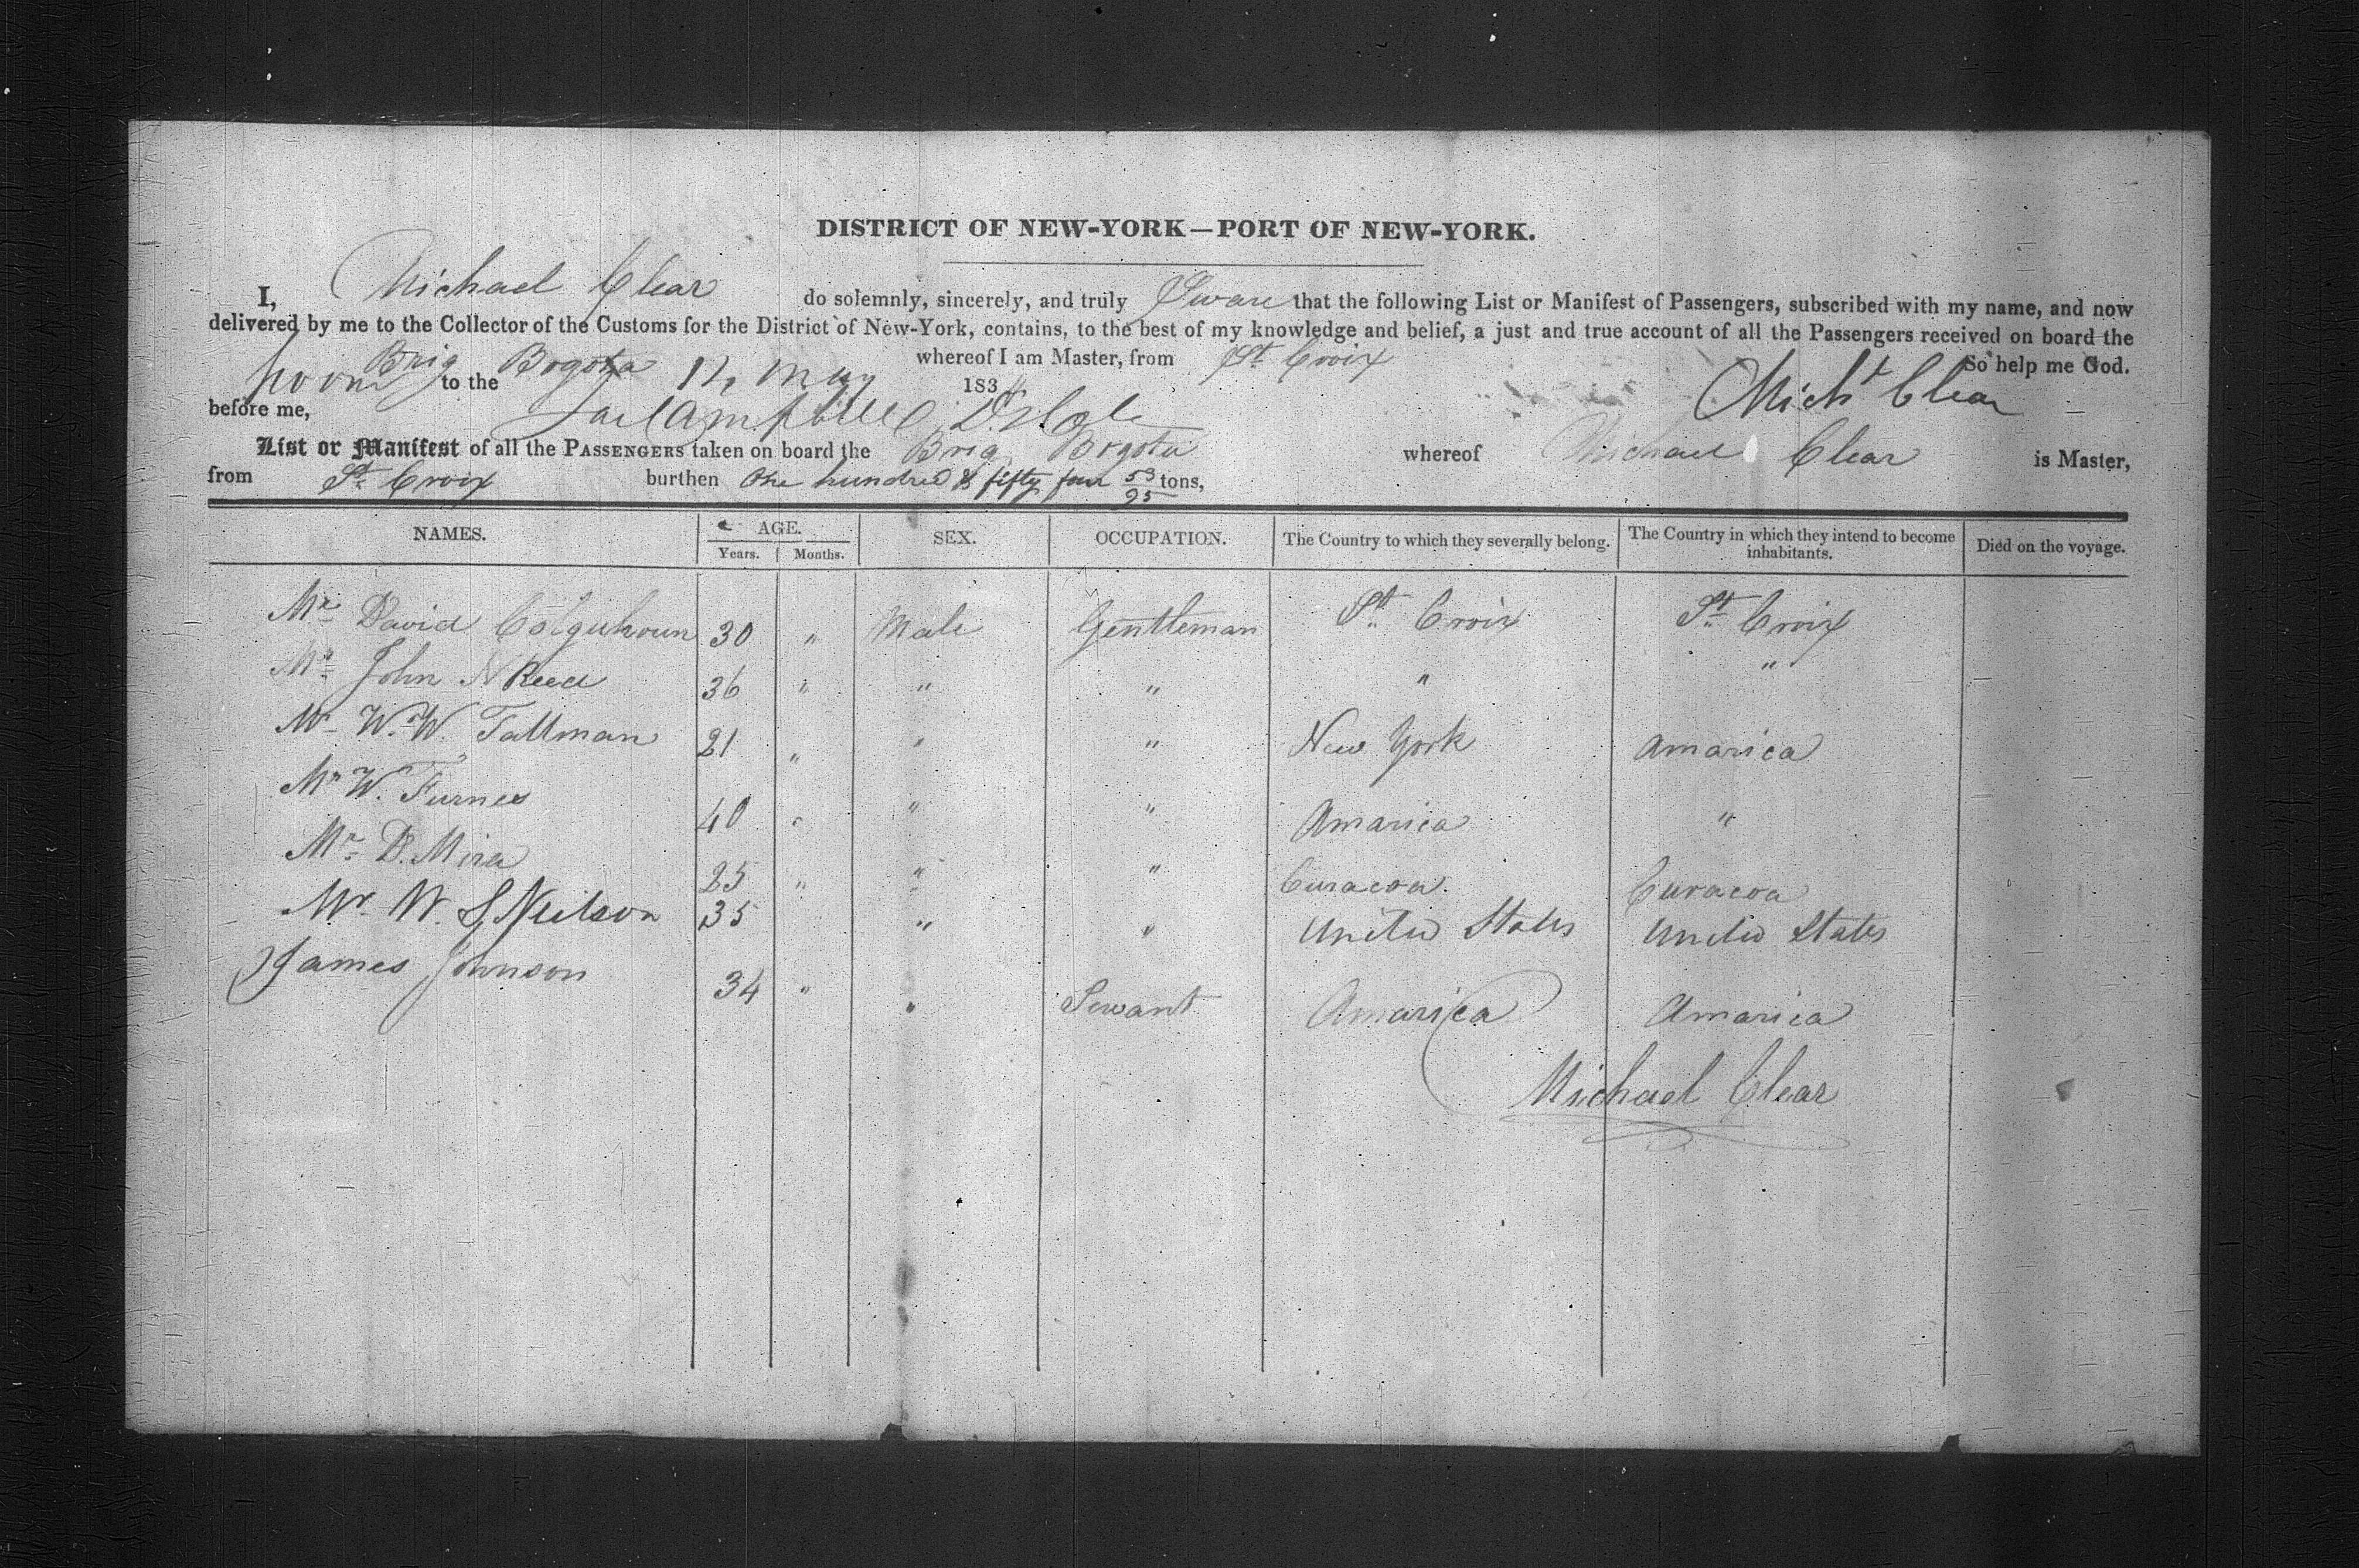 DISTRICT OF NEW-YORK—PORT OF NEW-YORK.
I, Michael Clear do solemnly, sincerely, and truly Sware that the following List or Manifest of Passengers, subscribed with my name, and now
delivered by me to the Collector of the Customs for the District of New-York, contains, to the best of my knowledge and belief, a just and true account of all the Passengers received on board the
Brig Bogota whereof I am Master, from St. Croix So help me God.
Sworn to the 12 May 183 Mich Clear
before me,
List or Manifest of all the PASSENGERS taken on board the Brig Bogota whereof Michael Clear is Master,
from St. Croix burthen One hundred & fifty four 53/95 tons,
NAMES. AGE. SEX. OCCUPATION. The Country to which they severally belong. The Country in which they intend to become inhabitants. Died on the voyage.
Years. Months.
Mr. David Colquhoun 30 " Male Gentleman St. Croix St. Croix
Mr. John N Reed 36 " " " " "
Mr. W. W. Tallman 21 " " " New York Amarica
Mr W. Furnes 40 " " " Amarica "
Mr. D. Mira 25 " " " Curacoa. Curacoa
Mr. W. S. Neilson 35 " " United States United States
James Johnson 34 " " Servant Amarica Amarica
Michael Clear